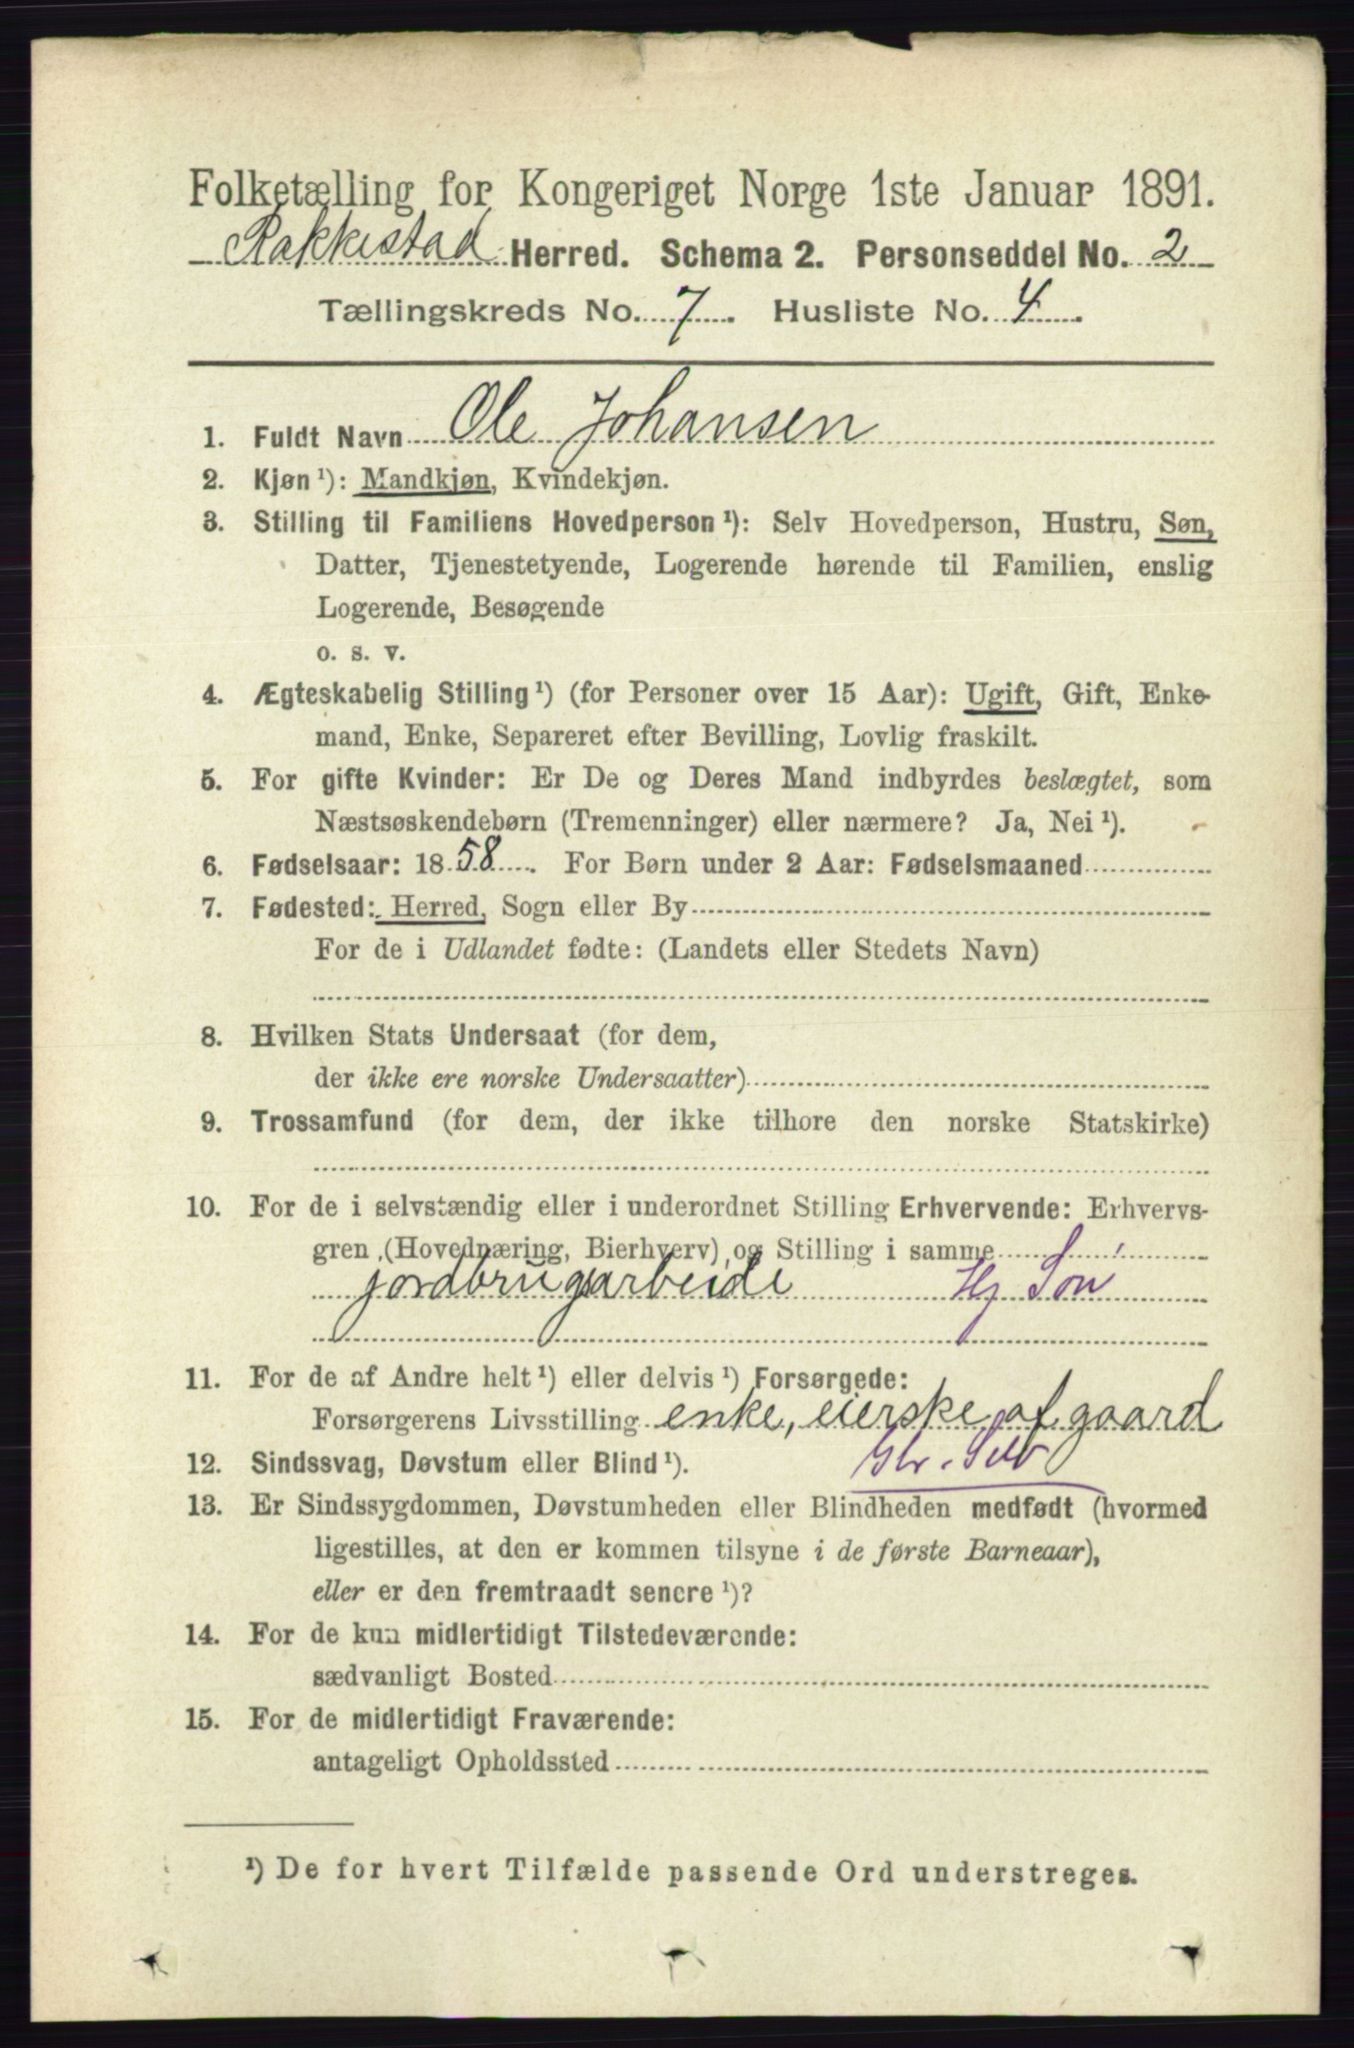 Folketælling for Kongeriget Norge 1ste Januar 1891.
Rakkestad Herred. Schema 2. Personseddel No. 2
Tællingskreds No. 7. Husliste No. 4.
1. Fuldt Navn Ole Johansen
2. Kjøn ¹): Mandkjøn, Kvindekjøn.
3. Stilling til Familiens Hovedperson ¹): Selv Hovedperson, Hustru, Søn,
Datter, Tjenestetyende, Logerende hørende til Familien, enslig
Logerende, Besøgende
o. s. v.
4. Ægteskabelig Stilling ¹) (for Personer over 15 Aar): Ugift, Gift, Enke-
mand, Enke, Separeret efter Bevilling, Lovlig fraskilt.
5. For gifte Kvinder: Er De og Deres Mand indbyrdes beslægtet, som
Næstsøskendebørn (Tremenninger) eller nærmere? Ja, Nei ¹).
6. Fødselsaar: 1858. For Børn under 2 Aar: Fødselsmaaned
7. Fødested: Herred, Sogn eller By
For de i Udlandet fødte: (Landets eller Stedets Navn)
8. Hvilken Stats Undersaat (for dem,
der ikke ere norske Undersaatter)
9. Trossamfund (for dem, der ikke tilhore den norske Statskirke)
10. For de i selvstændig eller i underordnet Stilling Erhvervende: Erhvervs-
gren (Hovednæring, Bierhverv) og Stilling i samme
jordbrugarbeide Hj Søn
11. For de af Andre helt ¹) eller delvis ¹) Forsørgede:
Forsørgerens Livsstilling enke, eierske af gaard
12. Sindssvag, Døvstum eller Blind ¹). Gbr. Selv
13. Er Sindssygdommen, Døvstumheden eller Blindheden medfødt (hvormed
ligestilles, at den er kommen tilsyne i de første Barneaar),
eller er den fremtraadt senere ¹)?
14. For de kun midlertidigt Tilstedeværende:
sædvanligt Bosted
15. For de midlertidigt Fraværende:
antageligt Opholdssted
¹) De for hvert Tilfælde passende Ord understreges.